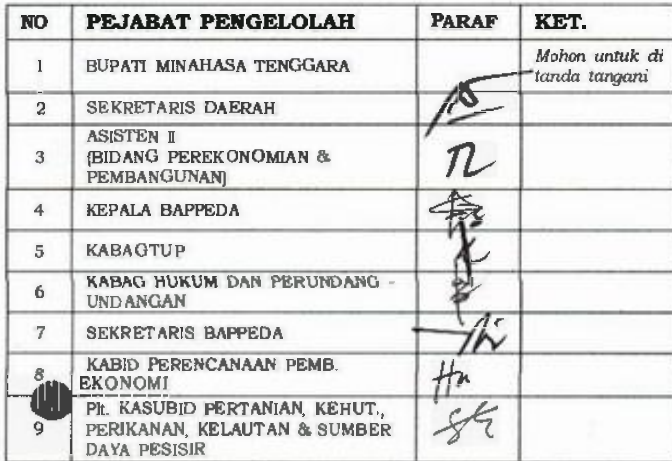 NO PEJABAT PENGELOLAH PARAF KET.
1 BUPATI MINAHASA TENGGARA Mohon untuk di
tanda tangani
2 SEKRETARIS DAERAH
ASISTEN II
3 (BIDANG PEREKONOMIAN &
PEMBANGUNAN)
4 KEPALA BAPPEDA
5 KABAGTUP
6 KABAG HUKUM DAN PERUNDANG -
UNDANGAN
7 SEKRETARIS BAPPEDA
8 KABID PERENCANAAN PEMB.
EKONOMI
Plt. KASUBID PERTANIAN, KEHUT.,
9 PERIKANAN, KELAUTAN & SUMBER
DAYA PESISIR